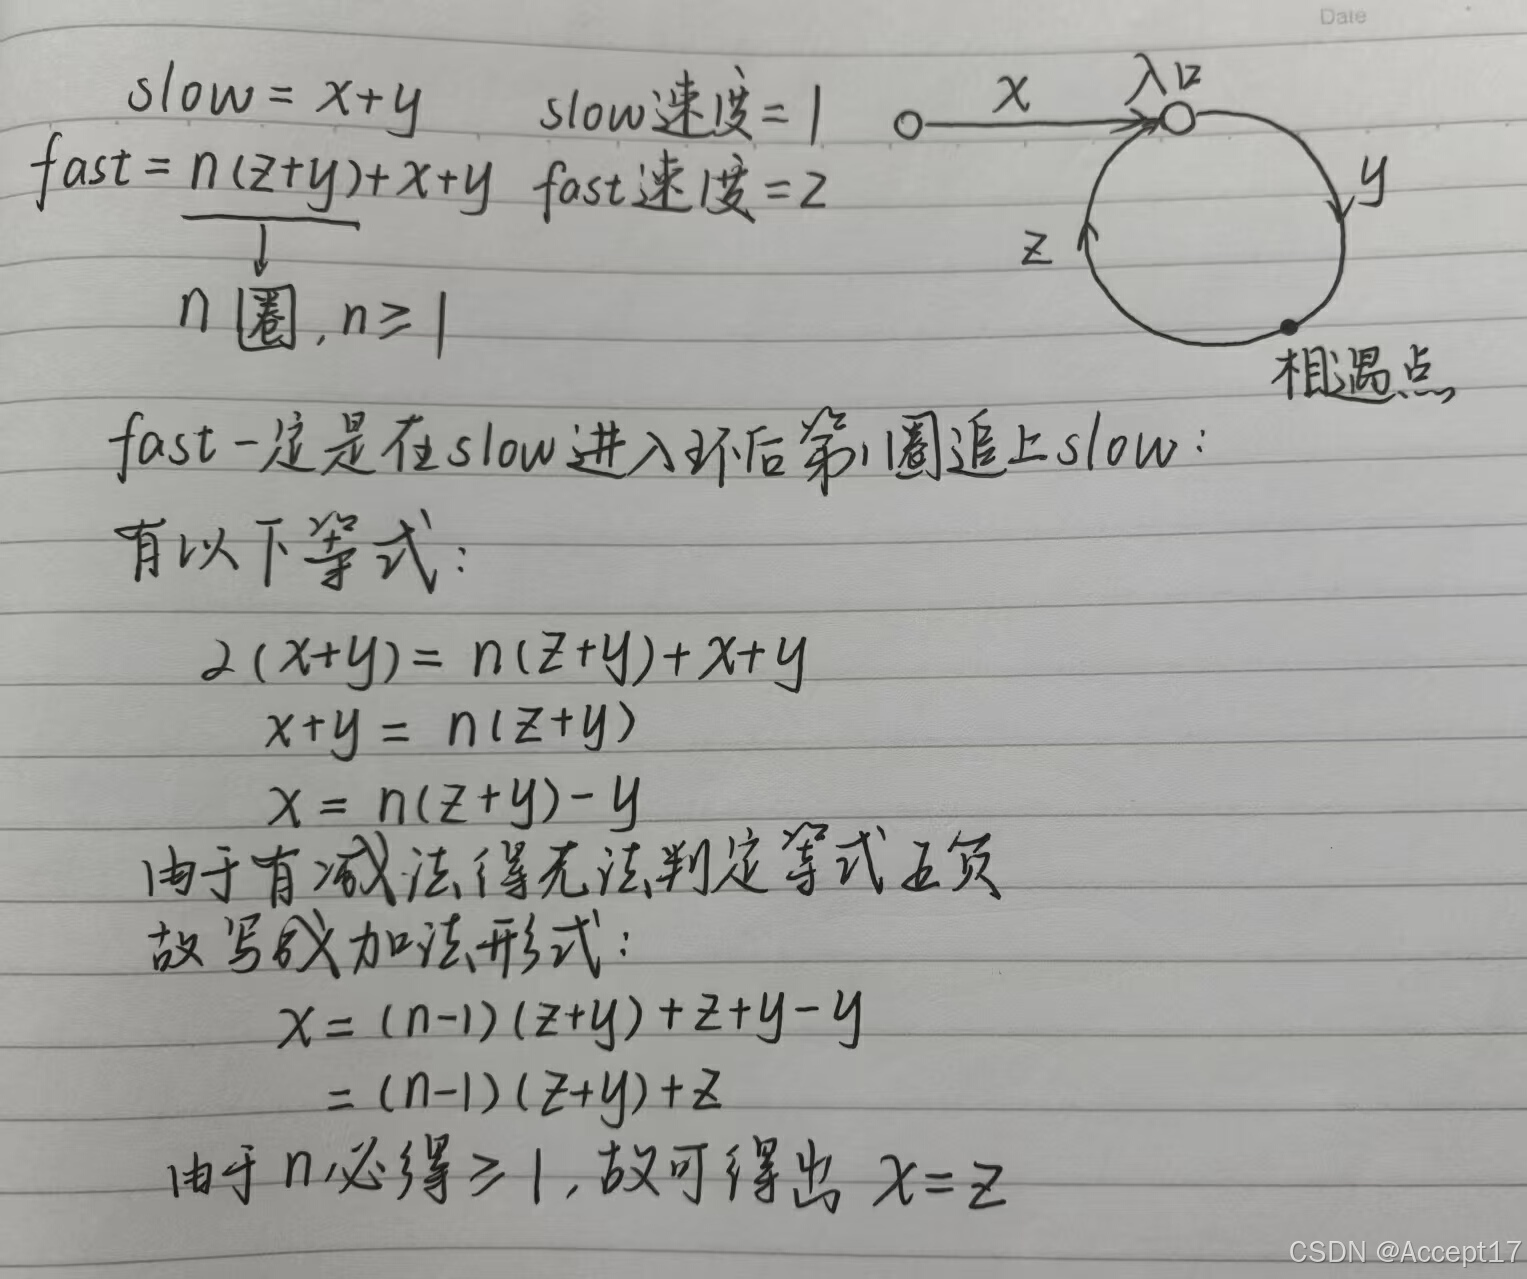 Date
slow = x+y slow速度=1
fast = n(z+y)+x+y fast速度=2
n圈,n≥1
x
入口
y
z
相遇点
fast一定是在slow进入环后第1圈追上slow:
有以下等式:
2(x+y)= n(z+y)+x+y
x+y = n(z+y)
x = n(z+y)-y
由于有减法得无法判定等式正负
故写成加法形式:
x = (n-1)(z+y)+z+y-y
= (n-1)(z+y)+z
由于n必得≥1,故可得出 x=z
CSDN @Accept17